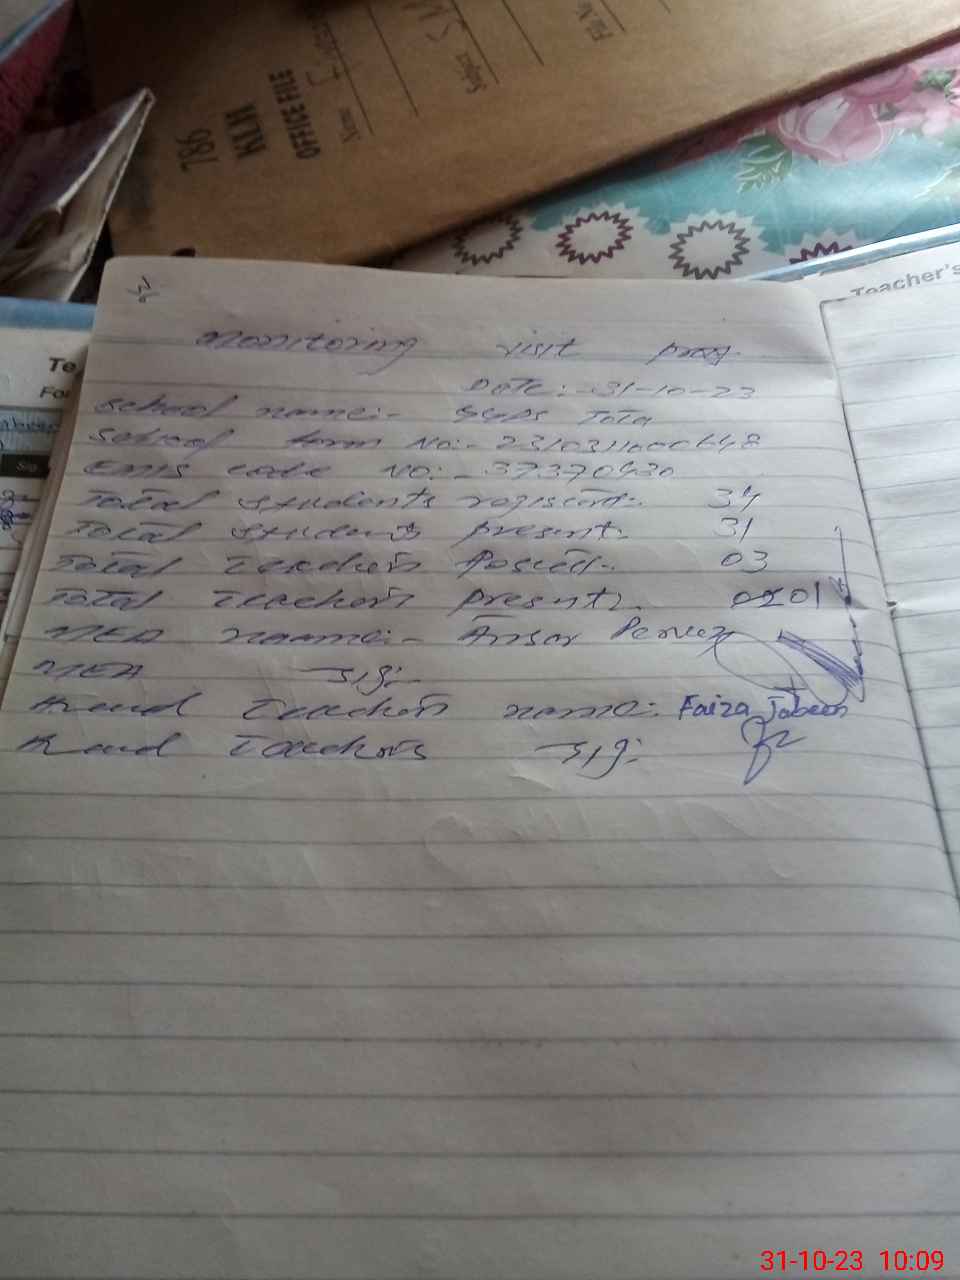 786
KLM
OFFICE FILE
Name
Subject
File No
Teacher's
Te
Fo
Sig
Monitoring visit prog.
Date:-31-10-23
School name:- GGPS Tota
School form No:-
EMIS code No:- 37370430
Total students register:- 34
Total students present:- 31
Total Teachers Posted:- 03
Total Teachers present:- 01
MEA name:- Ansar Pervez
MEA sig:-
Head Teachers name:- Faiza Jabeen
Head Teachers sig:
31-10-23 10:09